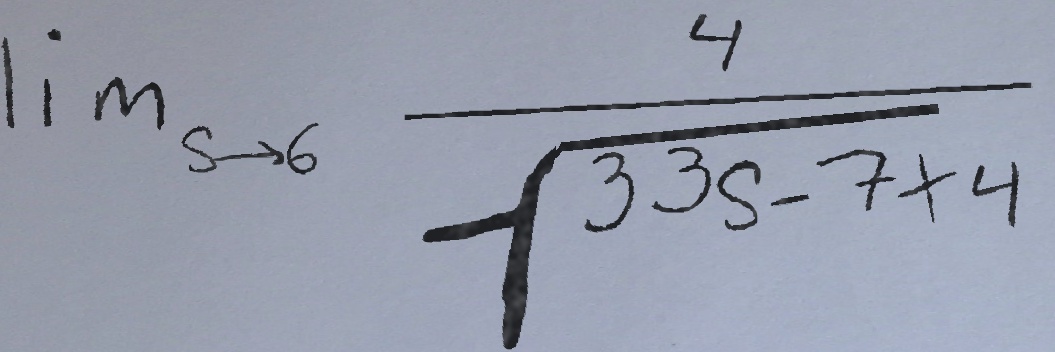 lim_{s→6} \frac{4}{\sqrt{33s-7}+4}